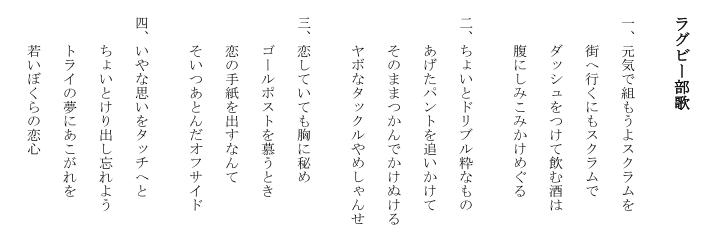 ラグビー部歌
一、元気で組もうよスクラムを
街へ行くにもスクラムで
ダッシュをつけて飲む酒は
腹にしみこみかけめぐる
二、ちょいとドリブル粋なもの
あげたパントを追いかけて
そのままつかんでかけぬける
ヤボなタックルやめしゃんせ
三、恋していても胸に秘め
ゴールポストを慕うとき
恋の手紙を出すなんて
そいつあとんだオフサイド
四、いやな思いをタッチへと
ちょいとけり出し忘れよう
トライの夢にあこがれを
若いぼくらの恋心